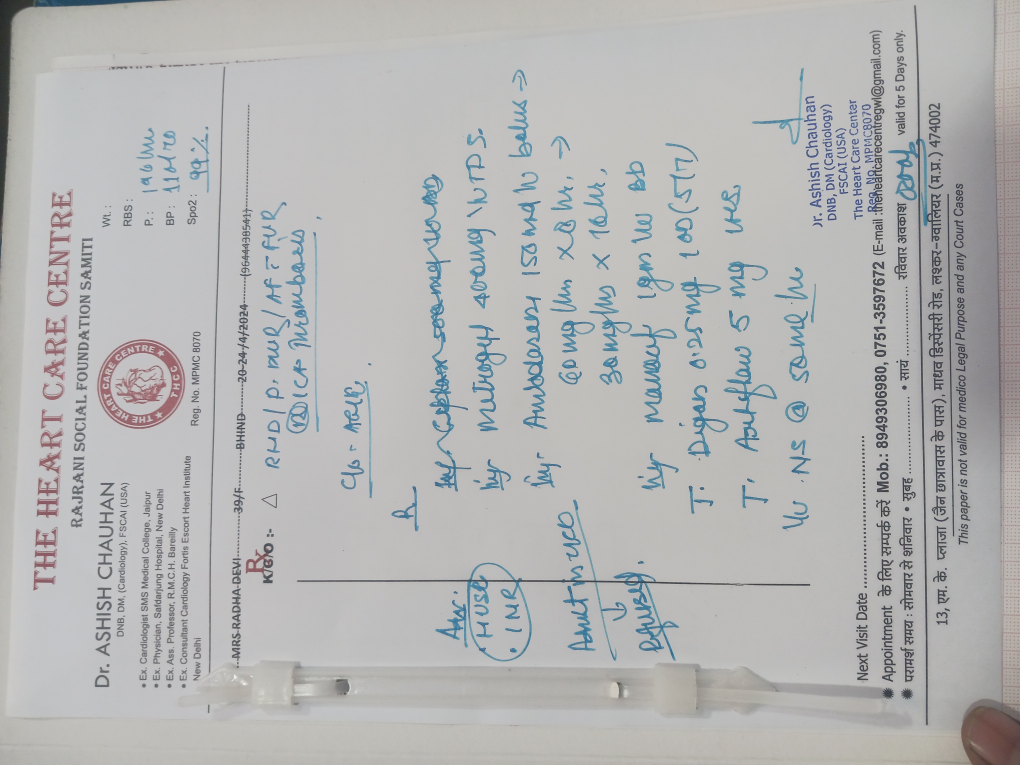 THE HEART CARE CENTRE
RAJRANI SOCIAL FOUNDATION SAMITI
Dr. ASHISH CHAUHAN
DNB, DM, (Cardiology), FSCAI (USA)
• Ex. Cardiologist SMS Medical College, Jaipur
• Ex. Physician, Safdarjung Hospital, New Delhi
• Ex. Ass. Professor, R.M.C.H. Bareilly
• Ex. Consultant Cardiology Fortis Escort Heart Institute
New Delhi
THE HEART CARE CENTRE
THCC
Reg. No. MPMC 8070
Wt. :
RBS :
P. : 196/m
BP : 110/70
Spo2 : 99%
MRS RADHA DEVI 39/F BHIND 20-24/4/2024 (9644438541)
Rx
K/C/O :- △ RHD / P. BMV / AF = FVR
ICA Thrombosis
R
Inj- metrogyl 400mg IV TDS.
Inj- 150mg IV bolus →
60mg/hr x 8 hr. →
30mg/hr x 16 hr.
Inj 1gm IV BD
T. Digox 0.25mg 1 OD (5/7)
T. 5 mg
IV NS @ 50ml/hr
Adv:
• HUSE
• INR
Admit in
↓
Refused.
Dr. Ashish Chauhan
DNB, DM (Cardiology)
FSCAI (USA)
The Heart Care Center
Reg. No. MPMC8070
Next Visit Date
✸ Appointment के लिए सम्पर्क करें Mob.: 8949306980, 0751-3597672 (E-mail :theheartcarecentregwl@gmail.com)
✸ परामर्श समय : सोमवार से शनिवार • सुबह • सायं रविवार अवकाश valid for 5 Days only.
13, एम. के. प्लाजा (जैन छात्रावास के पास), माधव डिस्पेंसरी रोड, लश्कर-ग्वालियर (म.प्र.) 474002
This paper is not valid for medico Legal Purpose and any Court Cases